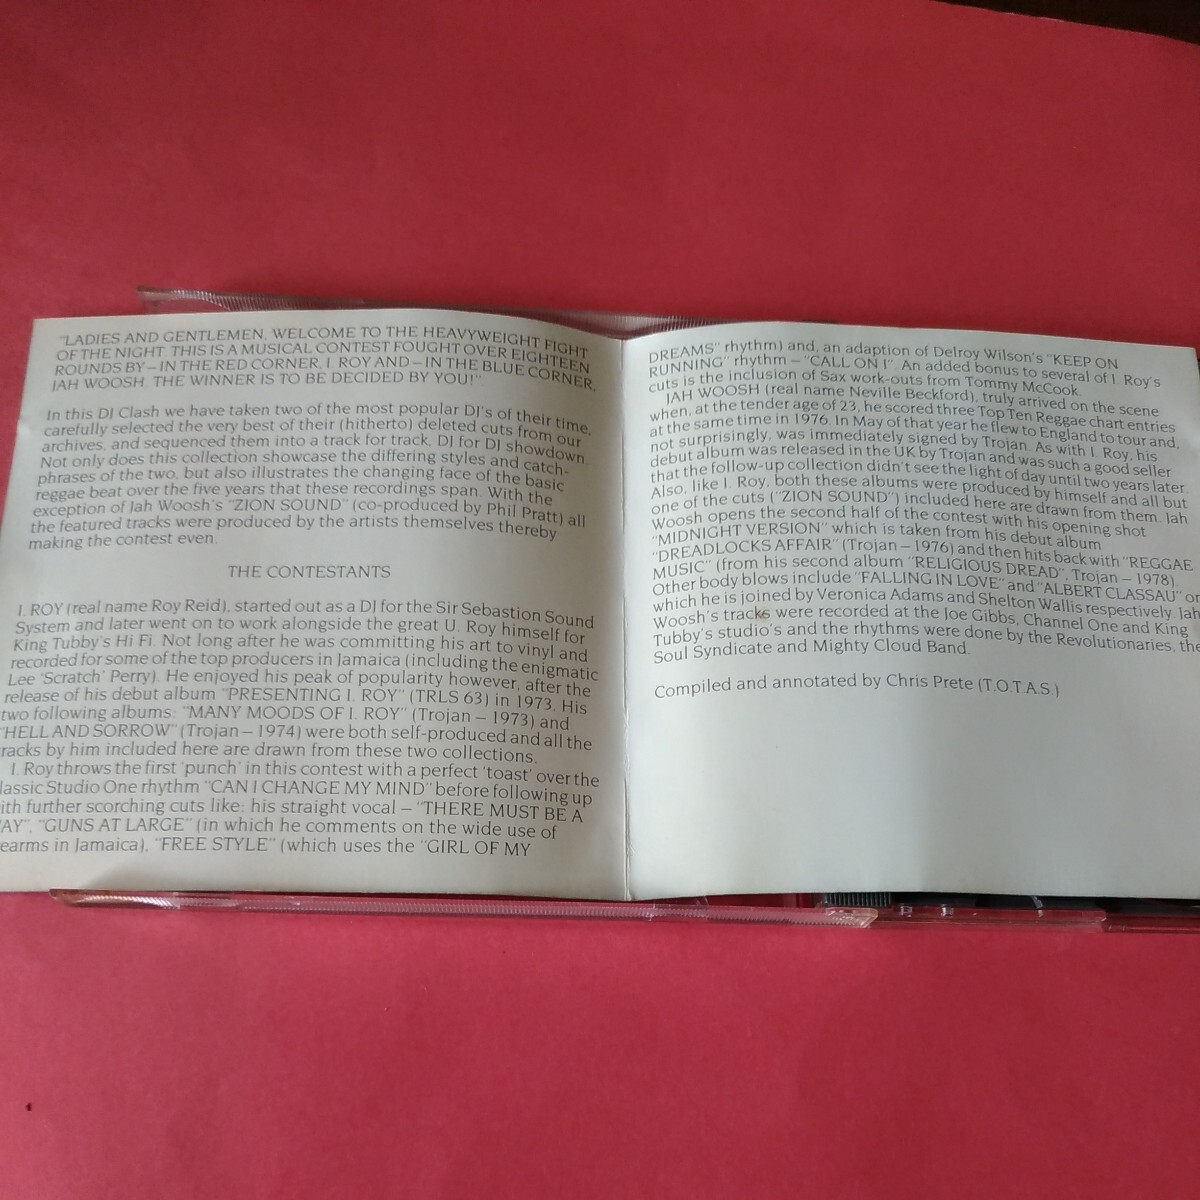 "LADIES AND GENTLEMEN, WELCOME TO THE HEAVYWEIGHT FIGHT
OF THE NIGHT. THIS IS A MUSICAL CONTEST FOUGHT OVER EIGHTEEN
ROUNDS BY – IN THE RED CORNER, I. ROY AND – IN THE BLUE CORNER,
JAH WOOSH. THE WINNER IS TO BE DECIDED BY YOU!"
In this DJ Clash we have taken two of the most popular DJ's of their time,
carefully selected the very best of their (hitherto) deleted cuts from our
archives, and sequenced them into a track for track, DJ for DJ showdown.
Not only does this collection showcase the differing styles and catch-
phrases of the two, but also illustrates the changing face of the basic
reggae beat over the five years that these recordings span. With the
exception of Jah Woosh's "ZION SOUND" (co-produced by Phil Pratt) all
the featured tracks were produced by the artists themselves thereby
making the contest even.
THE CONTESTANTS
I. ROY (real name Roy Reid), started out as a DJ for the Sir Sebastion Sound
System and later went on to work alongside the great U. Roy himself for
King Tubby's Hi Fi. Not long after he was committing his art to vinyl and
recorded for some of the top producers in Jamaica (including the enigmatic
Lee 'Scratch' Perry). He enjoyed his peak of popularity however, after the
release of his debut album "PRESENTING I. ROY" (TRLS 63) in 1973. His
two following albums: "MANY MOODS OF I. ROY" (Trojan – 1973) and
"HELL AND SORROW" (Trojan – 1974) were both self-produced and all the
racks by him included here are drawn from these two collections.
I. Roy throws the first 'punch' in this contest with a perfect 'toast' over the
lassic Studio One rhythm "CAN I CHANGE MY MIND" before following up
ith further scorching cuts like: his straight vocal – "THERE MUST BE A
AY", "GUNS AT LARGE" (in which he comments on the wide use of
earms in Jamaica), "FREE STYLE" (which uses the "GIRL OF MY
DREAMS" rhythm) and, an adaption of Delroy Wilson's "KEEP ON
RUNNING" rhythm – "CALL ON I". An added bonus to several of I. Roy's
cuts is the inclusion of Sax work-outs from Tommy McCook.
JAH WOOSH (real name Neville Beckford), truly arrived on the scene
when, at the tender age of 23, he scored three Top Ten Reggae chart entries
at the same time in 1976. In May of that year he flew to England to tour and,
not surprisingly, was immediately signed by Trojan. As with I. Roy, his
debut album was released in the UK by Trojan and was such a good seller
that the follow-up collection didn't see the light of day until two years later.
Also, like I. Roy, both these albums were produced by himself and all but
one of the cuts ("ZION SOUND") included here are drawn from them. Jah
Woosh opens the second half of the contest with his opening shot
"MIDNIGHT VERSION" which is taken from his debut album
"DREADLOCKS AFFAIR" (Trojan – 1976) and then hits back with "REGGAE
MUSIC" (from his second album "RELIGIOUS DREAD", Trojan – 1978).
Other body blows include "FALLING IN LOVE" and "ALBERT CLASSAU" on
which he is joined by Veronica Adams and Shelton Wallis respectively. Jah
Woosh's tracks were recorded at the Joe Gibbs, Channel One and King
Tubby's studio's and the rhythms were done by the Revolutionaries, the
Soul Syndicate and Mighty Cloud Band.
Compiled and annotated by Chris Prete (T.O.T.A.S.)